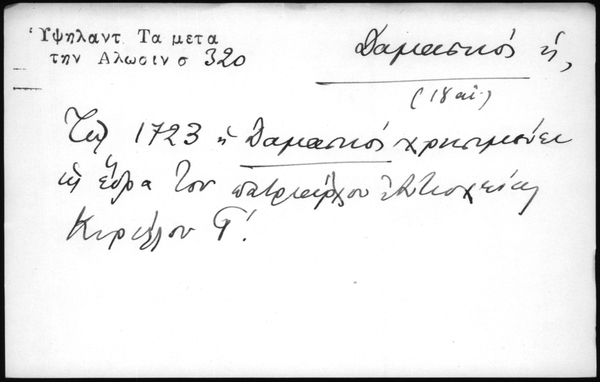 Ὑψηλαντ. Τα μετα
την Αλωσιν σ 320
Δαμασκός ἡ,
(18 αἰ.)
Τῷ 1723 ἡ Δαμασκός χρησιμεύει
ὡς ἕδρα του πατριάρχου Ἀντιοχείας
Κυρίλλου Γ΄.